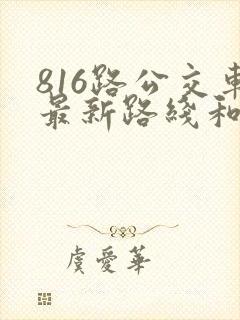 816路公交車
最新路綫和
虞愛華